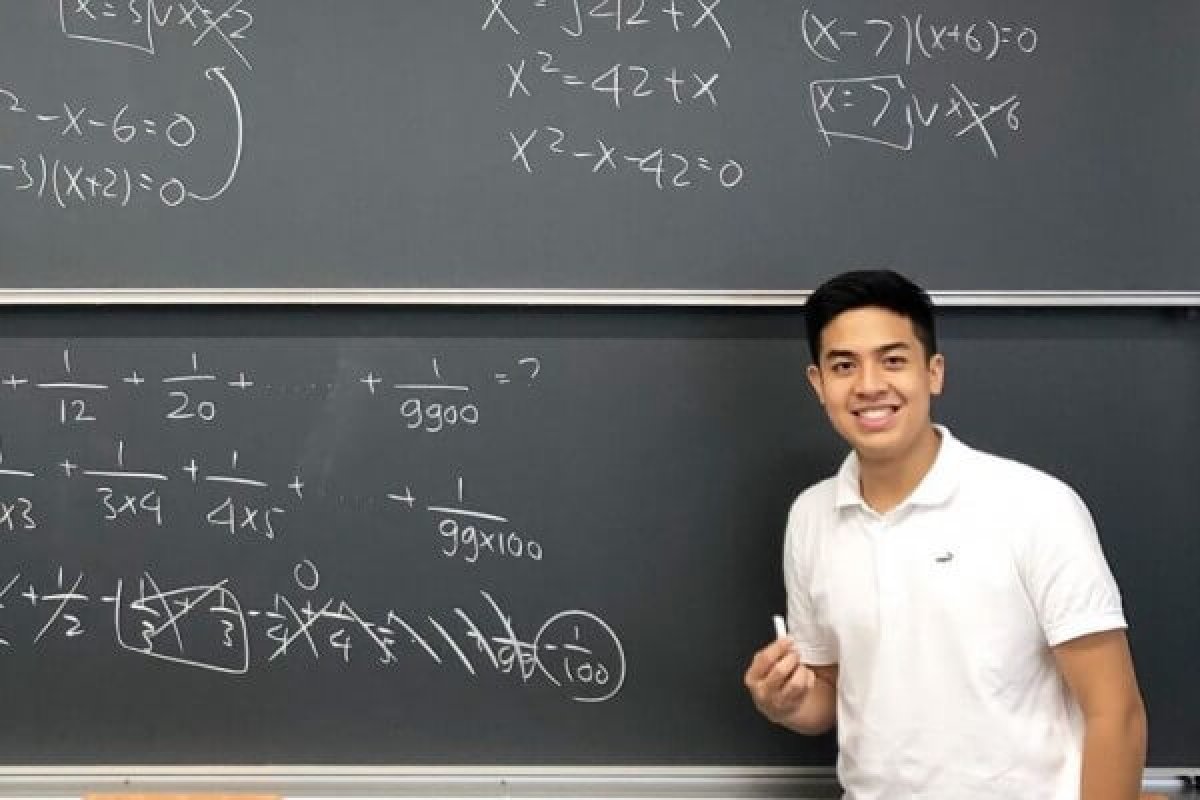 x=3 ∨ x=-2
²-x-6=0
-3)(x+2)=0
x=√42+x
x²=42+x
x²-x-42=0
(x-7)(x+6)=0
x=7 ∨ x=-6
+ 1/12 + 1/20 + ..... + 1/9900 = ?
x3 + 1/3x4 + 1/4x5 + .... + 1/99x100
+ 1/2 - 1/3 + 1/3 - 1/4 + 1/4 0
- 1/100